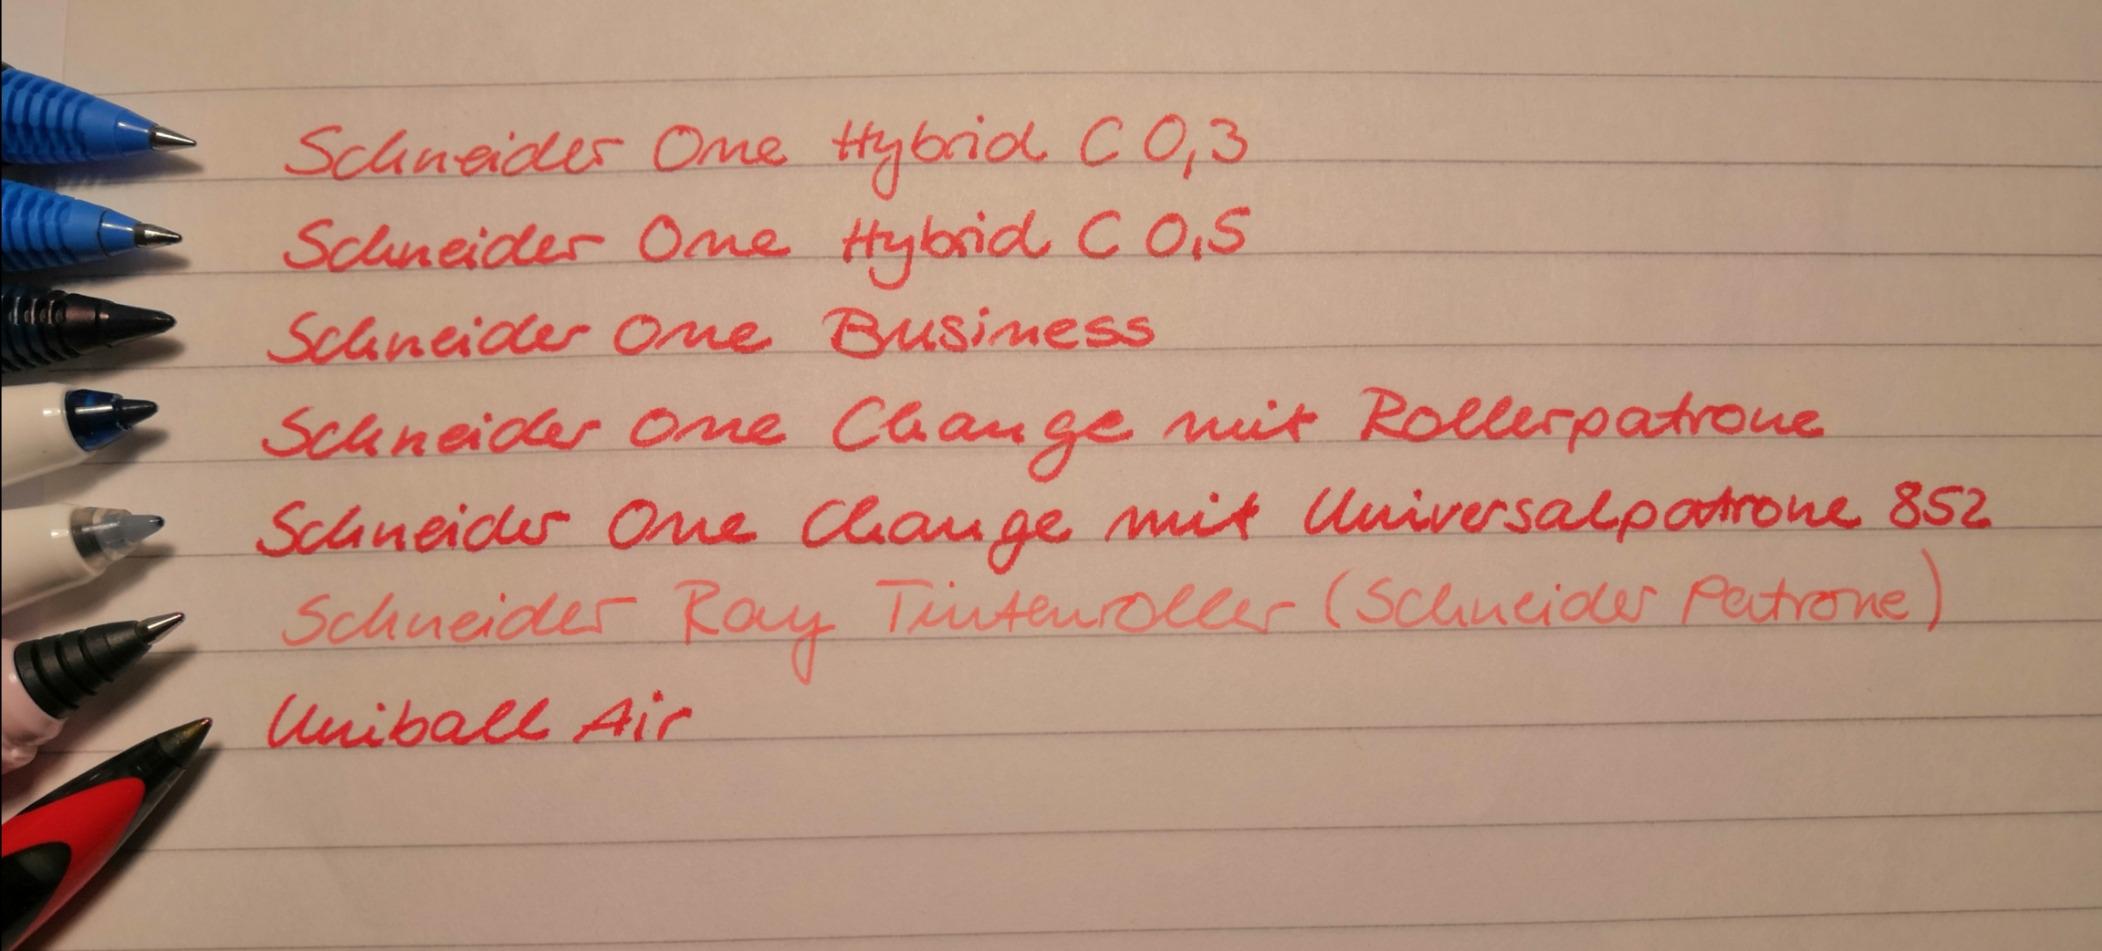 Schneider One Hybrid C 0,3
Schneider One Hybrid C 0,5
Schneider One Business
Schneider One Change mit Rollerpatrone
Schneider One Change mit Universalpatrone 852
Schneider Ray Tintenroller (Schneider Patrone)
Uniball Air